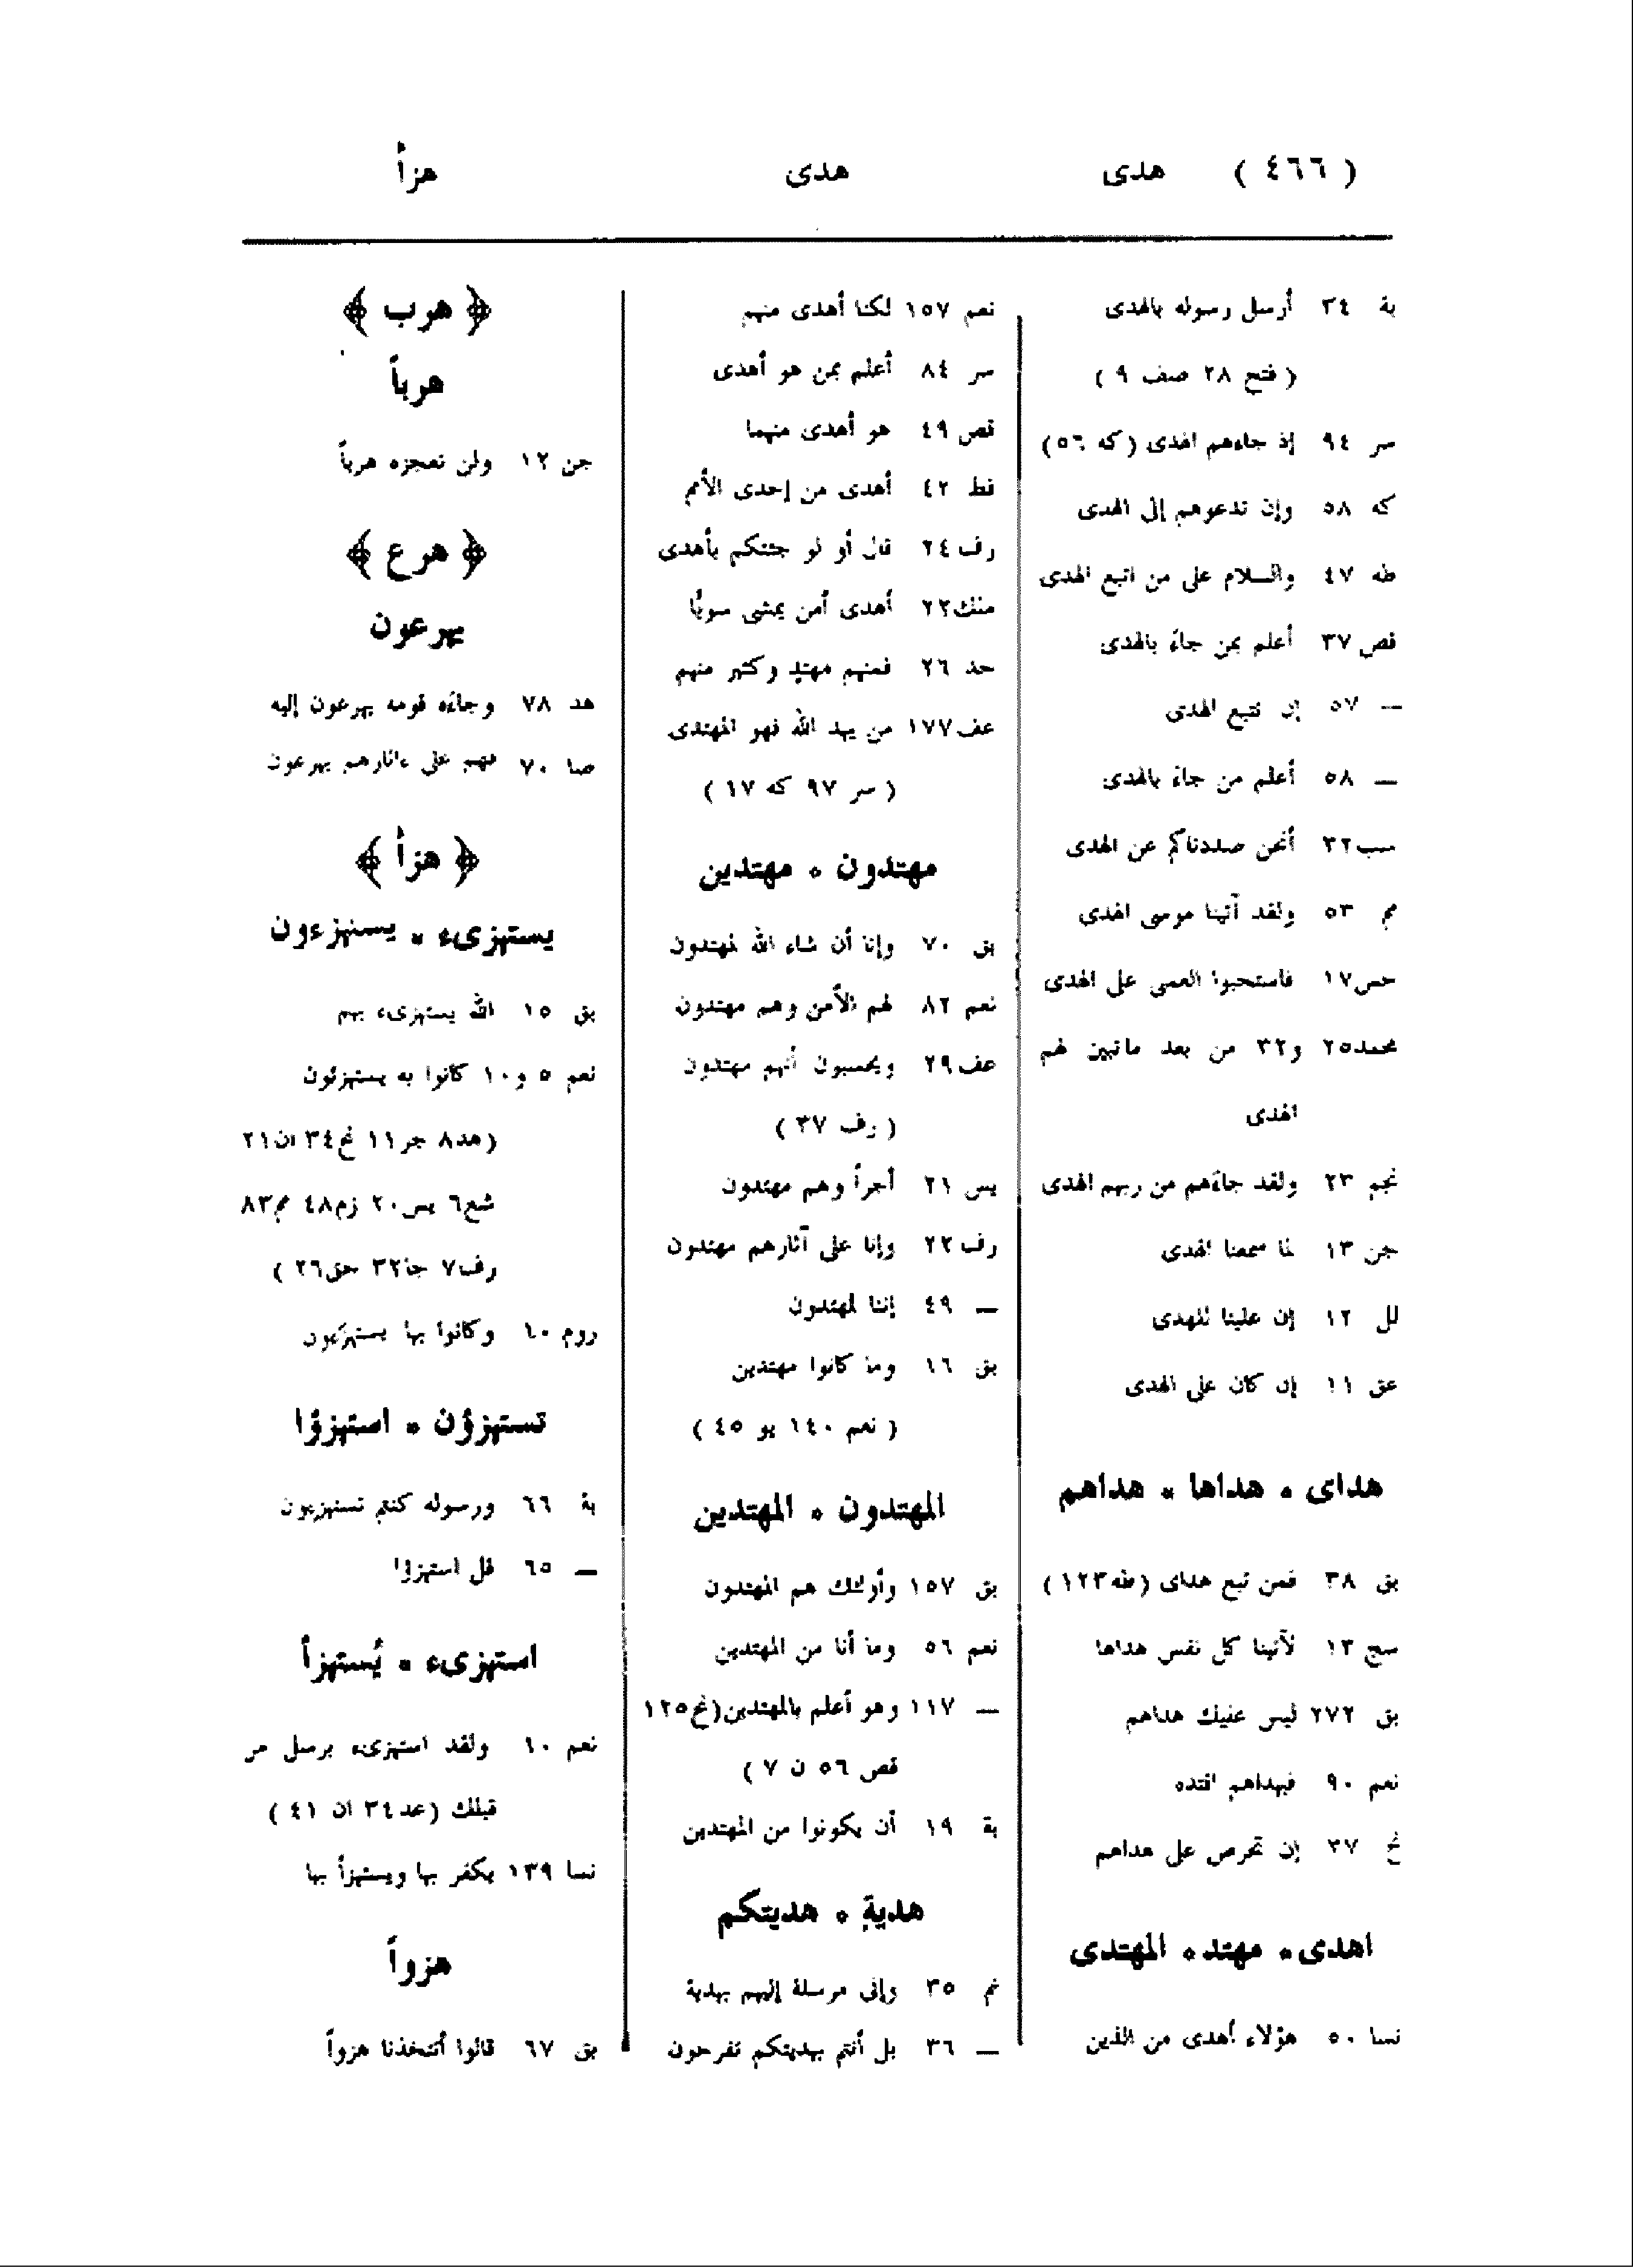 ( ٤٦٦ ) هدى هدى هزأ
بة ٣٤ أرسل رسوله بالهدى
( فتح ٢٨ صف ٩ )
سر ٩٤ إذ جاءهم الهدى (كه ٥٦)
كه ٥٨ وإن تدعوهم إلى الهدى
طه ٤٧ والسلام على من اتبع الهدى
قص ٣٧ أعلم بمن جاءَ بالهدى
— ٥٧ إن نتبع الهدى
— ٥٨ أعلم من جاءَ بالهدى
سب ٣٢ أنحن صددناكم عن الهدى
مم ٥٣ ولقد آتينا موسى الهدى
حس ١٧ فاستحبوا العمى على الهدى
محمد ٢٥ و٣٢ من بعد ماتبين لهم
الهدى
نجم ٢٣ ولقد جاءَهم من ربهم الهدى
جن ١٣ لما سمعنا الهدى
لل ١٢ إن علينا للهدى
عق ١١ إن كان على الهدى
هداى * هداها * هداهم
بق ٣٨ فمن تبع هداى (طه ١٢٣)
سج ١٣ لآتينا كل نفس هداها
بق ٢٧٢ ليس عليك هداهم
نعم ٩٠ فبهداهم اقتده
نح ٣٧ إن تحرص على هداهم
اهدى * مهتد * المهتدى
نسا ٥٠ هؤلاء أهدى من الذين
نعم ١٥٧ لكنا أهدى منهم
سر ٨٤ أعلم بمن هو أهدى
قص ٤٩ هو أهدى منهما
فط ٤٢ أهدى من إحدى الأمم
رف ٢٤ قال أو لو جئتكم بأهدى
ملك ٢٢ أهدى أمن يمشى سويًّا
حد ٢٦ فمنهم مهتدٍ وكثير منهم
عف ١٧٧ من يهد الله فهو المهتدى
( سر ٩٧ كه ١٧ )
مهتدون * مهتدين
بق ٧٠ وإنا أن شاء الله لمهتدون
نعم ٨٢ لهم الأمن وهم مهتدون
عف ٢٩ ويحسبون أنهم مهتدون
( رف ٣٧ )
يس ٢١ أجراً وهم مهتدون
رف ٢٢ وإنا على آثارهم مهتدون
— ٤٩ إننا لمهتدون
بق ١٦ وما كانوا مهتدين
( نعم ١٤٠ يو ٤٥ )
المهتدون * المهتدين
بق ١٥٧ وأولئك هم المهتدون
نعم ٥٦ وما أنا من المهتدين
— ١١٧ وهو أعلم بالمهتدين (نح ١٢٥
قص ٥٦ ن ٧ )
بة ١٩ أن يكونوا من المهتدين
هدية * هديتكم
نم ٣٥ وإنى مرسلة إليهم بهدية
— ٣٦ بل أنتم بهديتكم تفرحون
﴿ هرب ﴾
هرباً
جن ١٢ ولن نعجزه هرباً
﴿ هرع ﴾
يهرعون
هد ٧٨ وجاءَه قومه يهرعون إليه
صا ٧٠ فهم على ءاثارهم يهرعون
﴿ هزأ ﴾
يستهزىء * يستهزءون
بق ١٥ الله يستهزىء بهم
نعم ٥ و١٠ كانوا به يستهزئون
(هد ٨ جر ١١ نح ٣٤ ان ٢١
شع ٦ يس ٢٠ زم ٤٨ مم ٨٣
رف ٧ جا ٣٢ حق ٢٦ )
روم ١٠ وكانوا بها يستهزءون
تستهزؤن * استهزؤا
بة ٦٦ ورسوله كنتم تستهزءون
— ٦٥ قل استهزؤا
استهزىء * يُستهزأ
نعم ١٠ ولقد استهزىء برسل من
قبلك (عد ٣٤ ان ٤١ )
نسا ١٣٩ يكفر بها ويستهزأ بها
هزواً
بق ٦٧ قالوا أتتخذنا هزواً